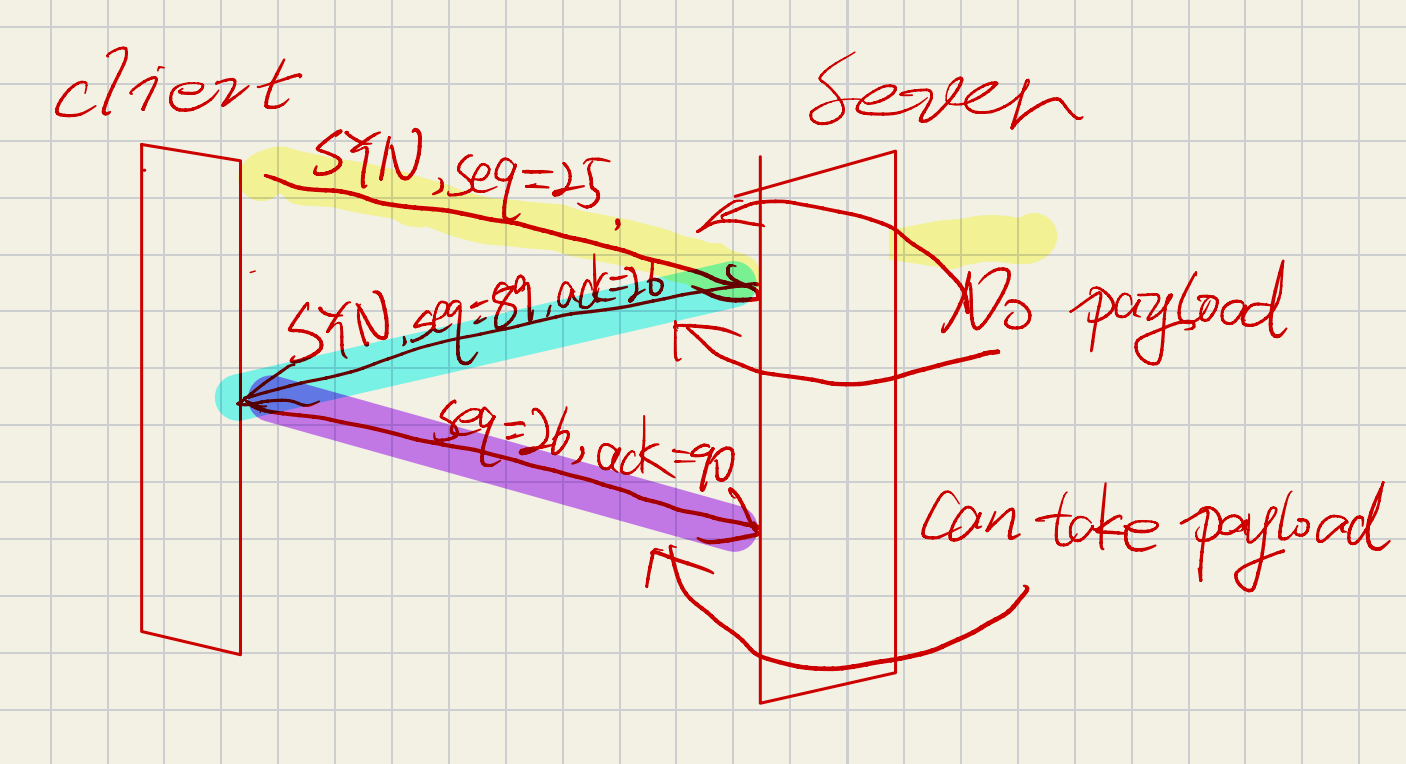 client
Server
SYN, seq=25,
SYN, seq=89, ack=26
No payload
seq=26, ack=90
Can take payload